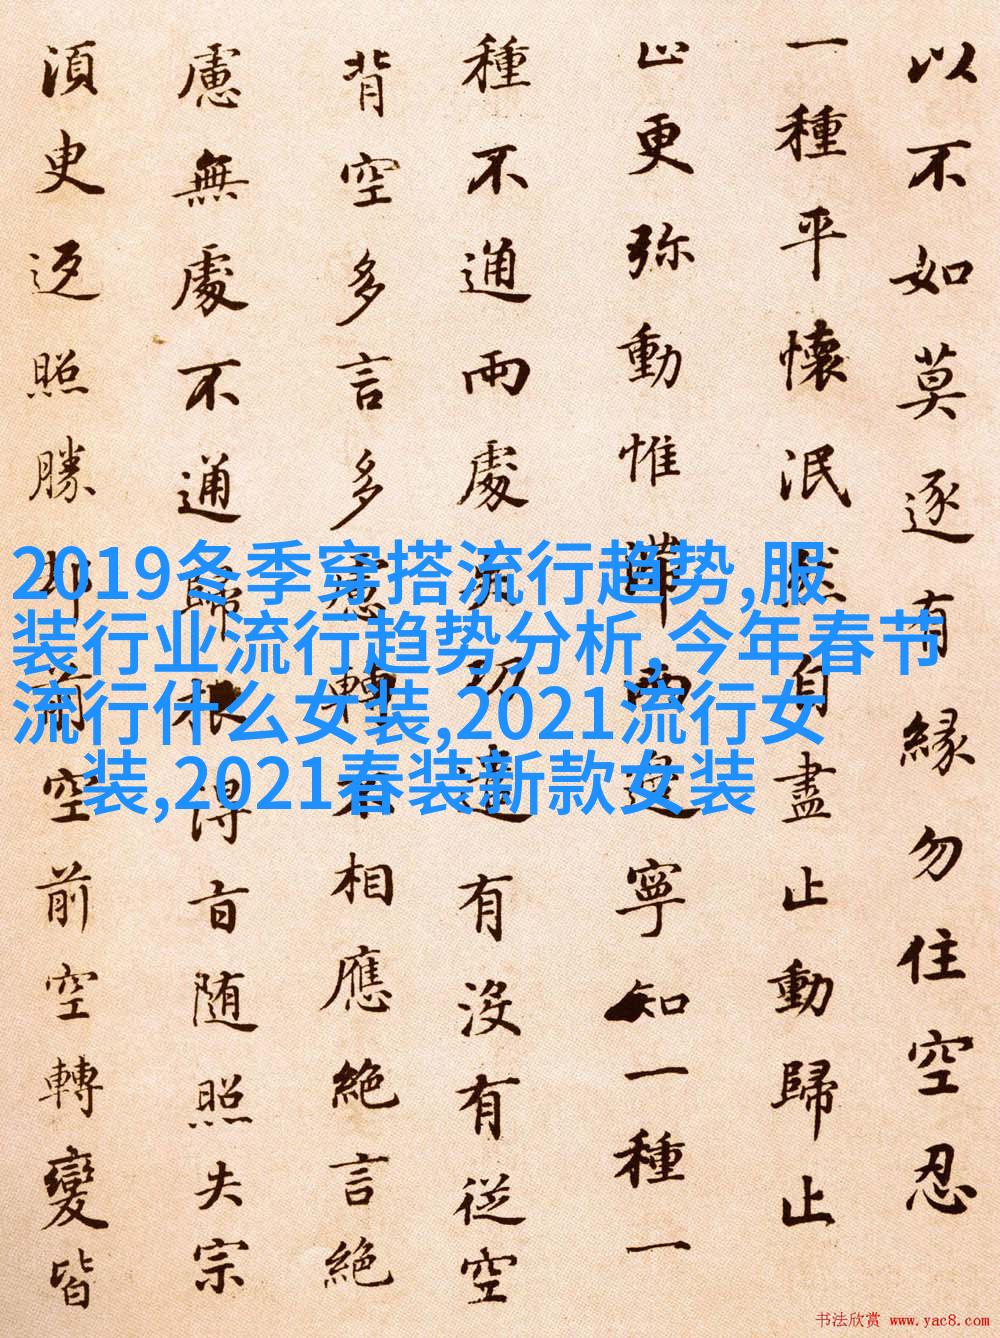 以不如莫逐有緣勿住空忍
一種平懷泯然自盡止動歸止
止更弥動惟滯兩邊寧知一種一
種不通兩處失功遣有沒有從空
背空多言多慮轉不相應絕言絕
慮無處不通歸根得旨随照失宗
須臾返照勝却前空前空轉變皆
2019冬季穿搭流行趋势,服
装行业流行趋势分析,今年春节
流行什么女装,2021流行女
装,2021春装新款女装
书法欣赏 www.yac8.com